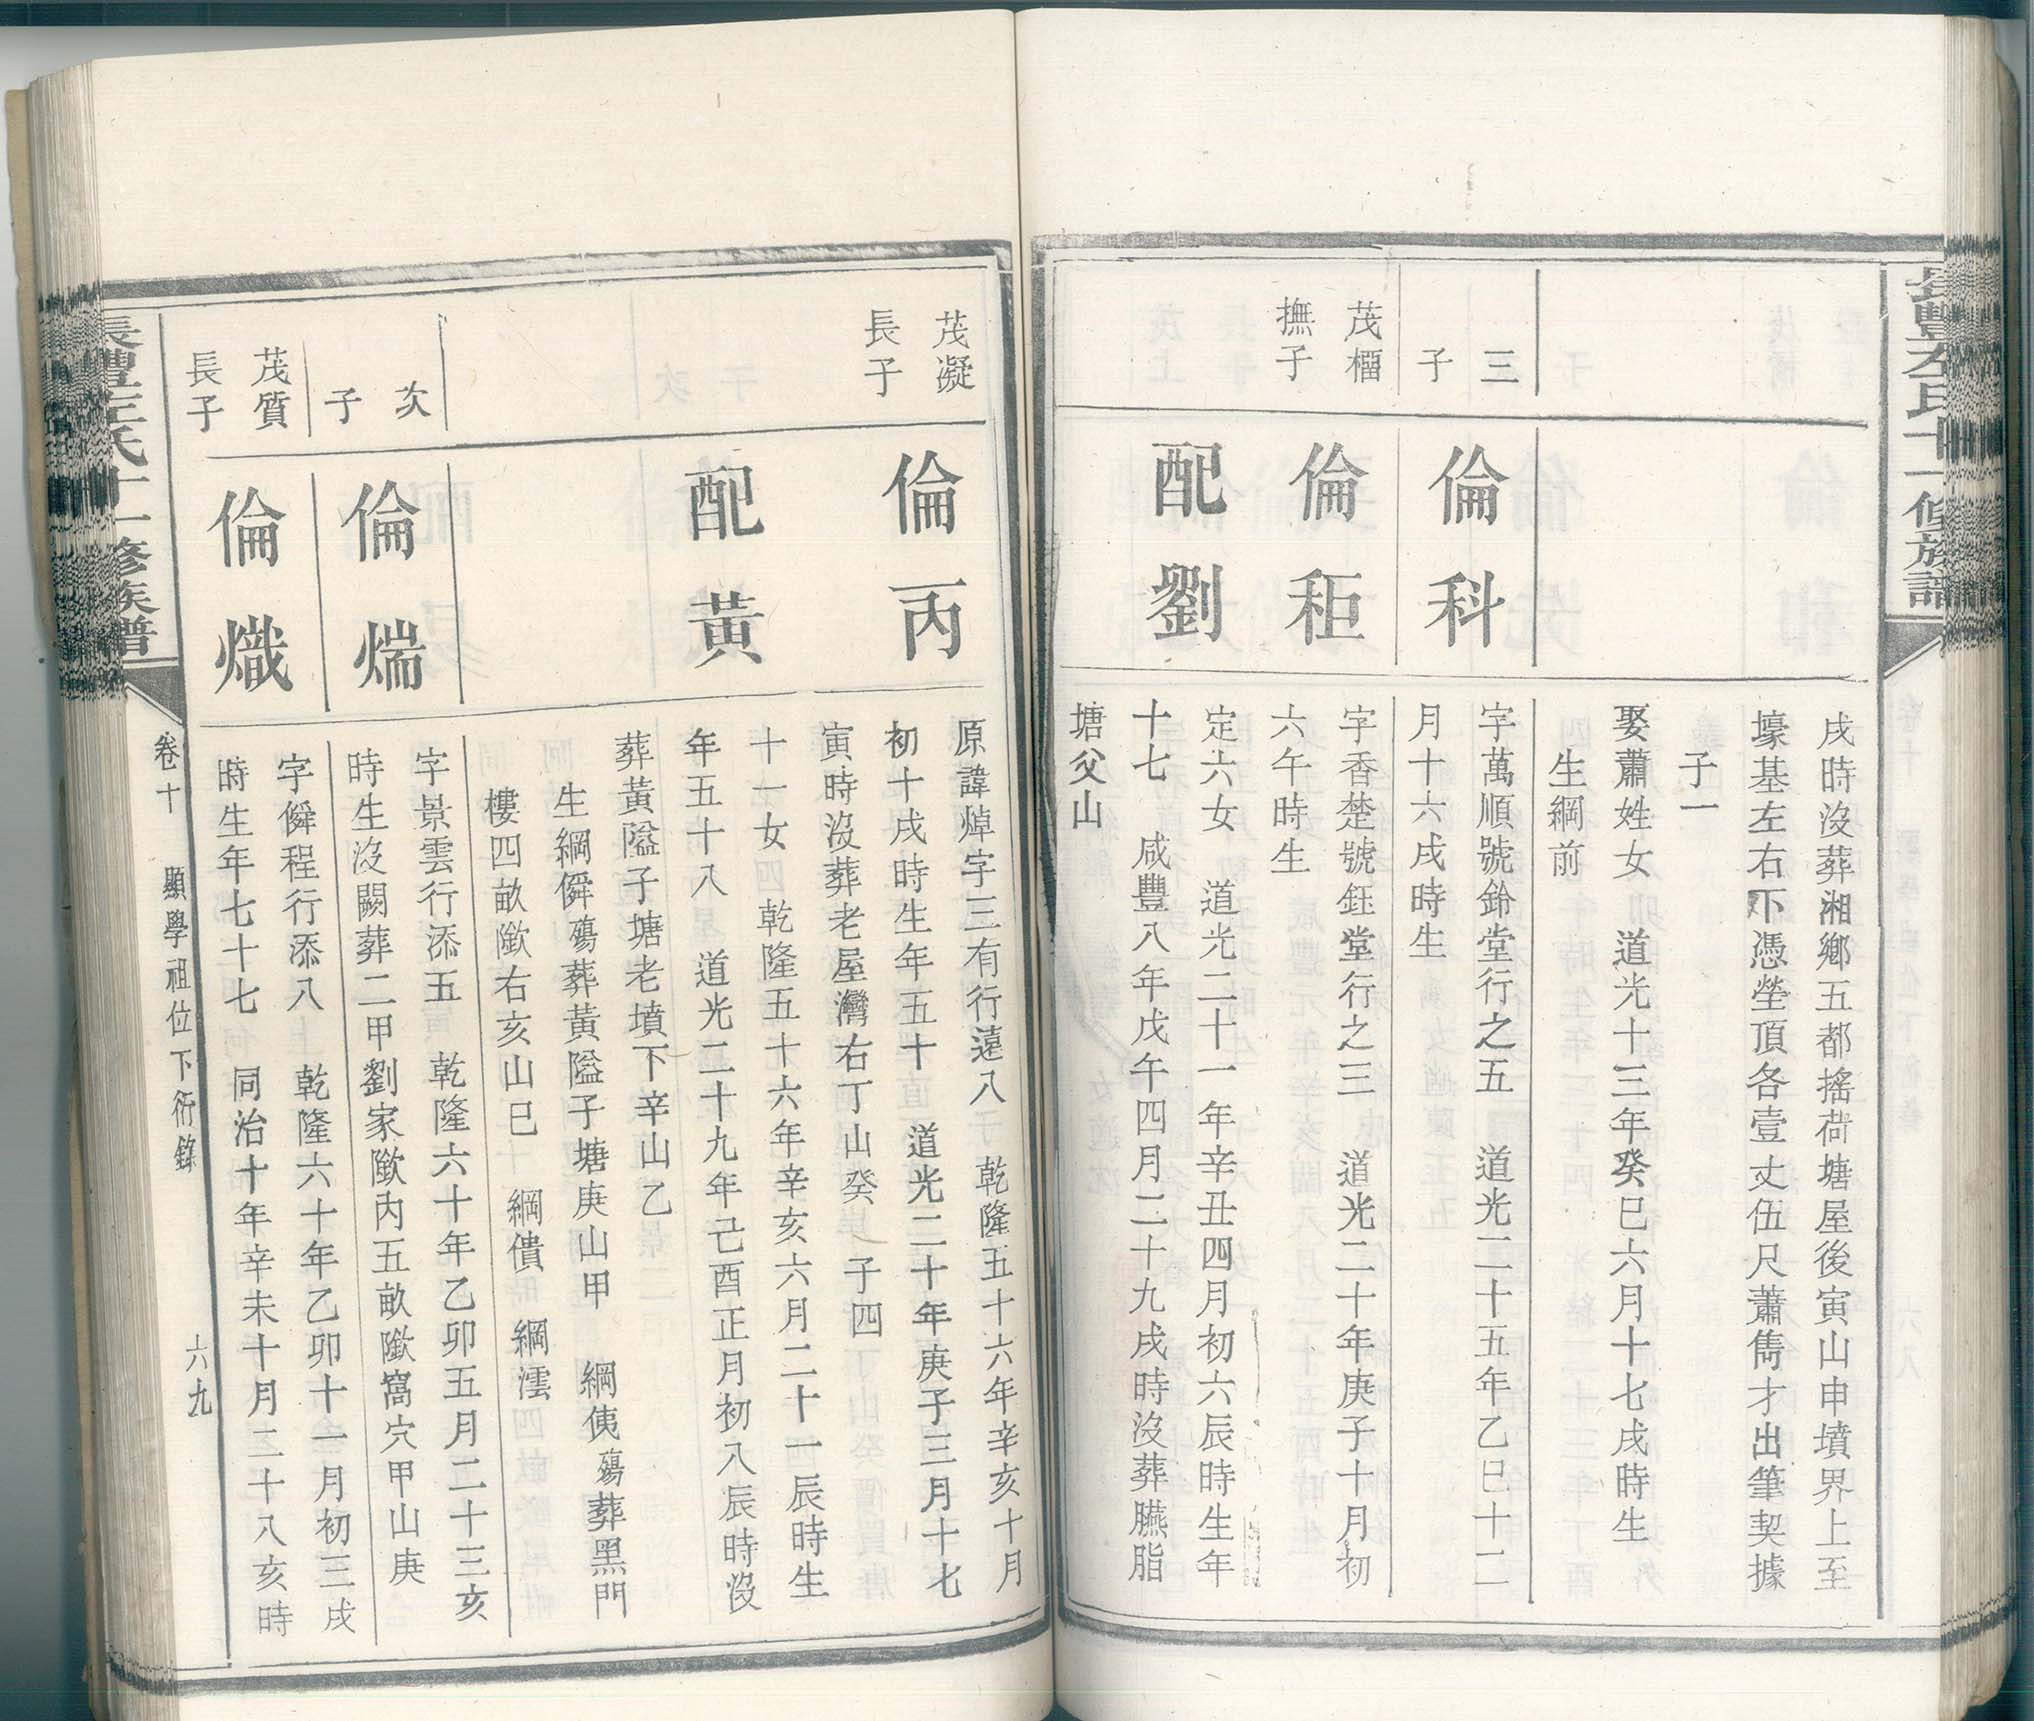 戌時沒葬湘鄉五都搖荷塘屋後寅山申墳界上至
壕基左右下憑塋頂各壹丈伍尺蕭雋才出筆契據
子一
娶蕭姓女 道光十三年癸巳六月十七戌時生
生綱前
三
子
倫科
字萬順號鈴堂行之五 道光二十五年乙巳十二
月十六戌時生
茂櫺
撫子
倫秬
字香楚號鈺堂行之三 道光二十年庚子十月初
六午時生
配劉
定六女 道光二十一年辛丑四月初六辰時生年
十七 咸豐八年戊午四月二十九戌時沒葬臙脂
塘父山
茂凝
長子
倫丙
原諱焯字三有行遠八 乾隆五十六年辛亥十月
初十戌時生年五十 道光二十年庚子三月十七
寅時沒葬老屋灣右丁山癸 子四
配黃
十一女 乾隆五十六年辛亥六月二十一辰時生
年五十八 道光二十九年己酉正月初八辰時沒
葬黃隘子塘老墳下辛山乙
生綱僢殤葬黃隘子塘庚山甲 綱侇殤葬黑門
樓四畝歘右亥山巳 綱僙 綱澐
次
子
倫煓
字景雲行添五 乾隆六十年乙卯五月二十三亥
時生沒闕葬二甲劉家歘內五畝歘窩穴甲山庚
茂質
長子
倫熾
字僢程行添八 乾隆六十年乙卯十一月初三戌
時生年七十七 同治十年辛未十月二十八亥時
卷十 顯學祖位下衍錄 六九